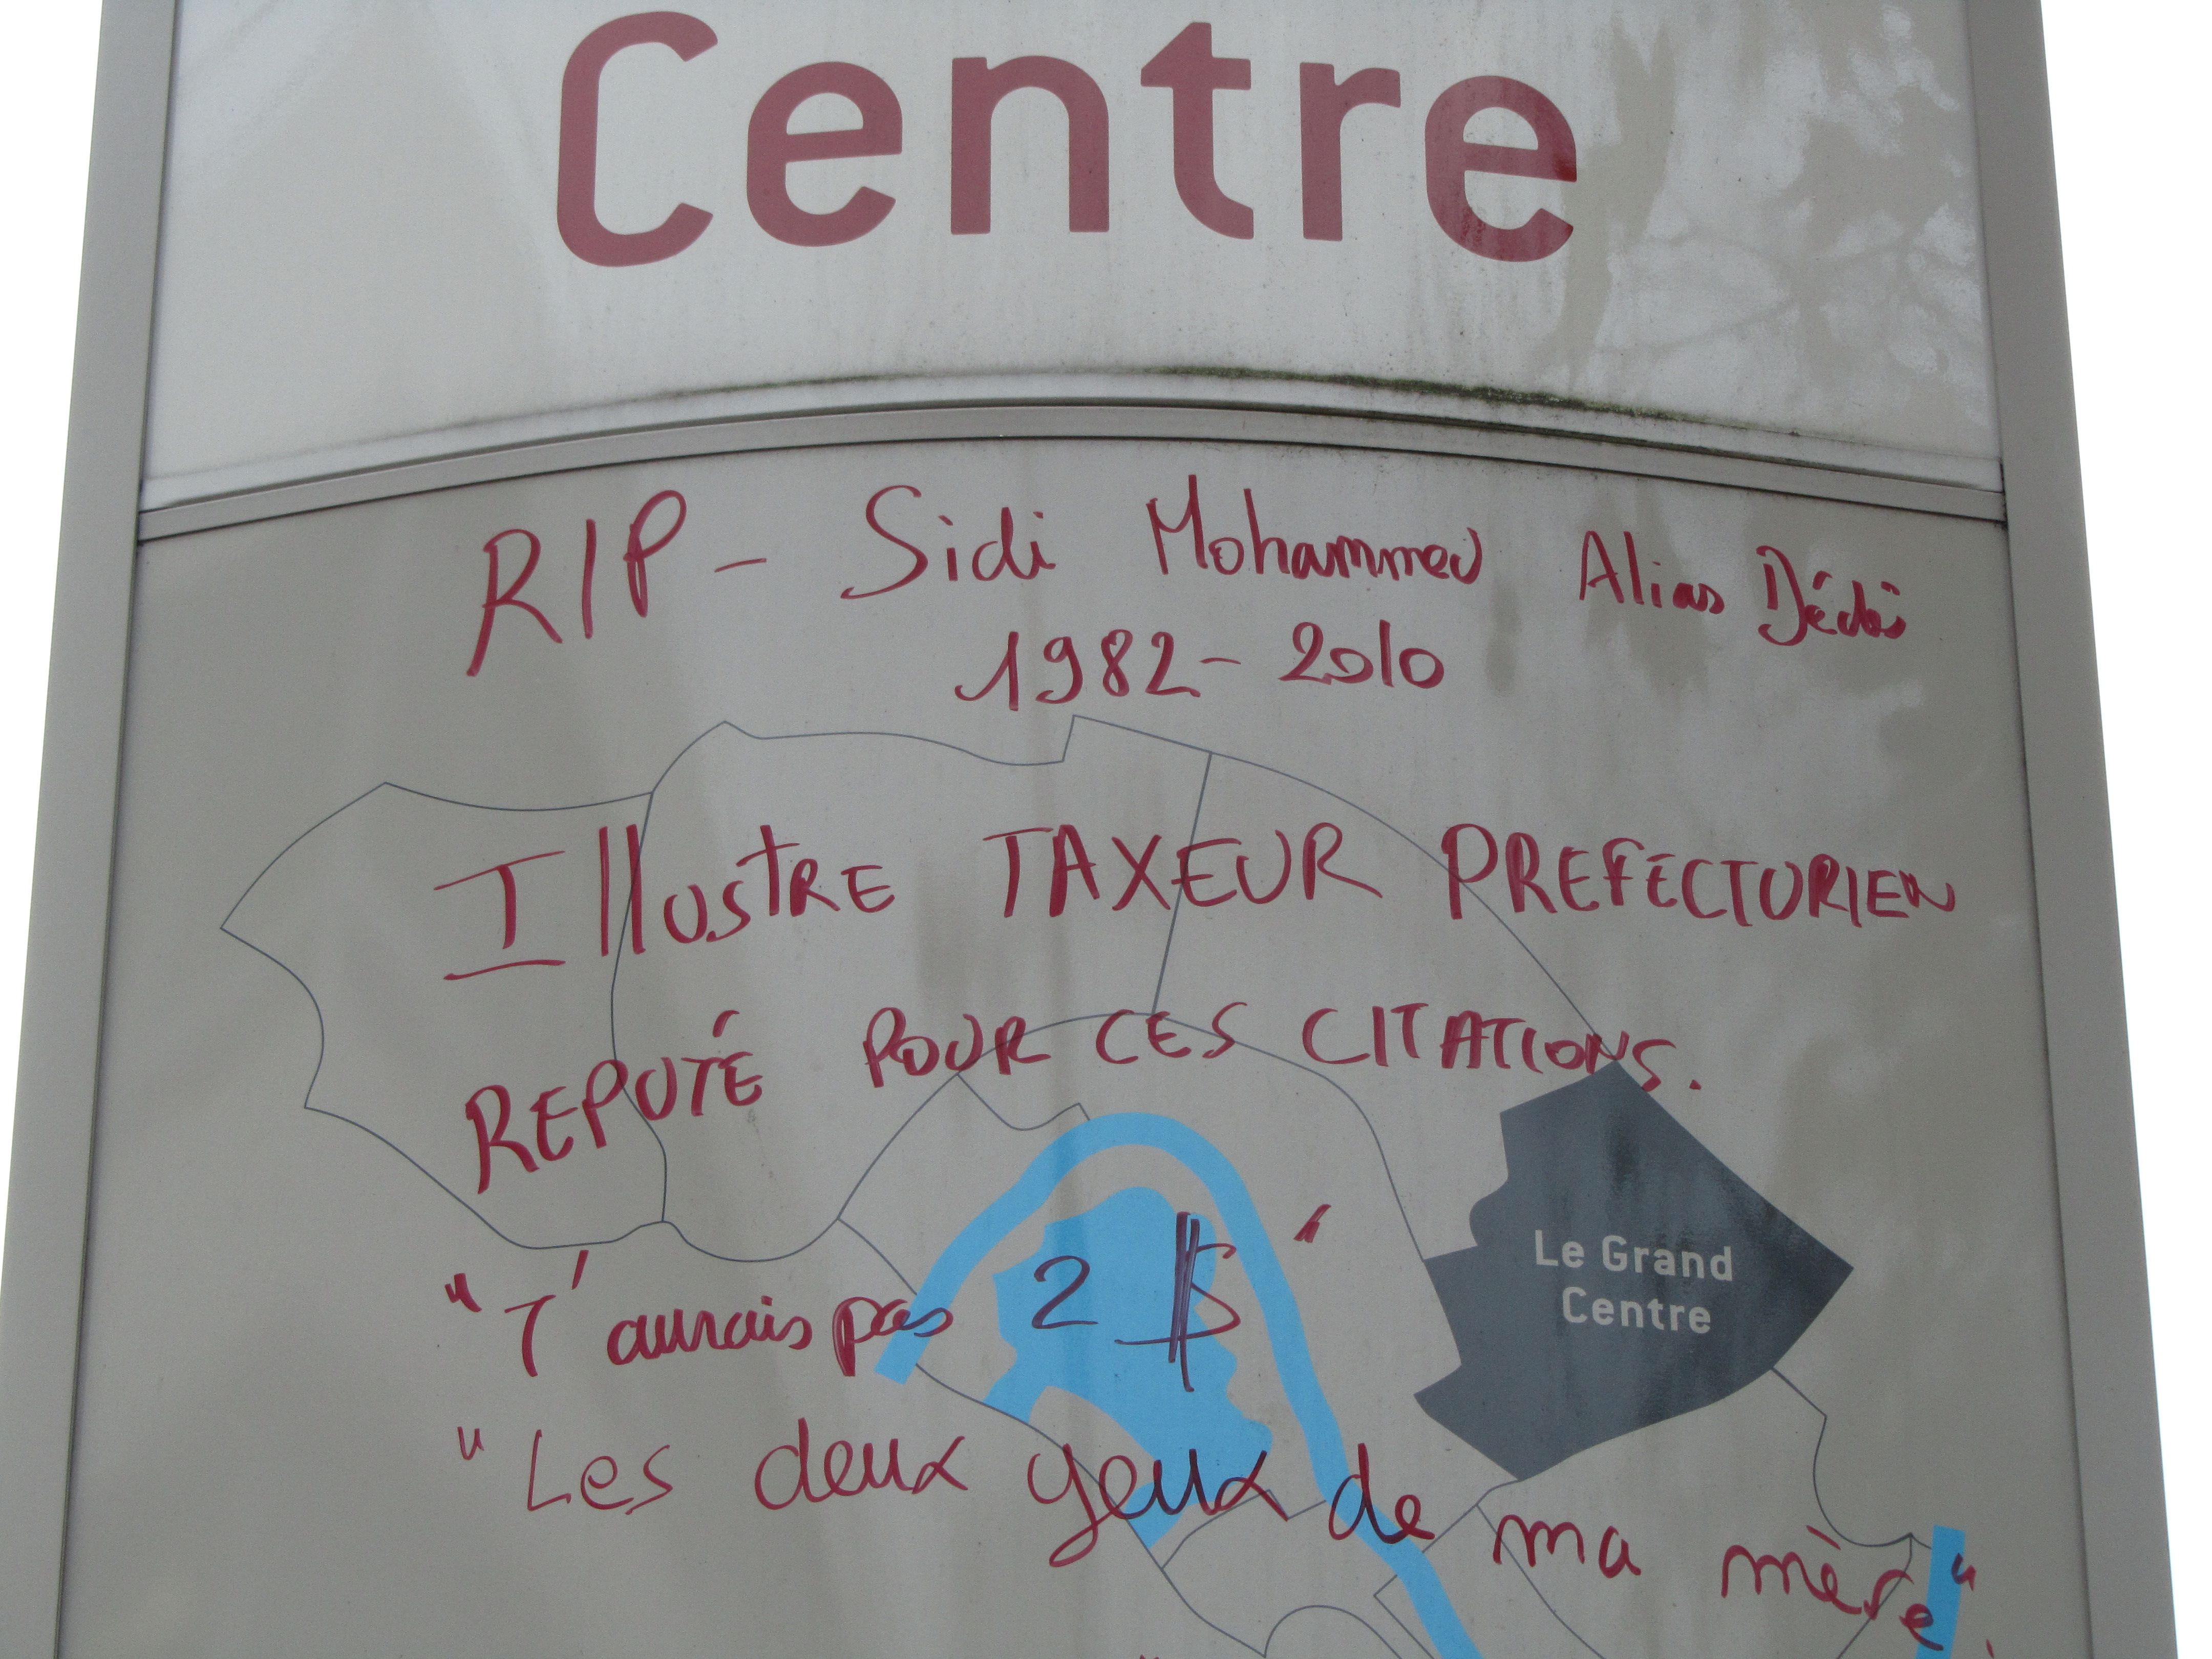 Centre
RIP - Sidi Mohammed Alias Dédé
1982 - 2010
IllustRE TAXEUR PREFECTORIEN
REPUTÉ POUR CES CITATIONS.
"T'aurais pas 2 $"
Le Grand
Centre
"Les deux yeux de ma mère"